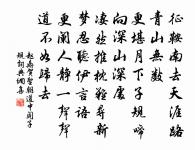 征鞍南去天涯路
青山無數
更堪月下子規啼
向深山深處
凄然推枕難尋新
夢忍聽伊言語
更闌人靜一聲聲
道不如歸去
趙鼎賀聖朝道中聞子
規詞